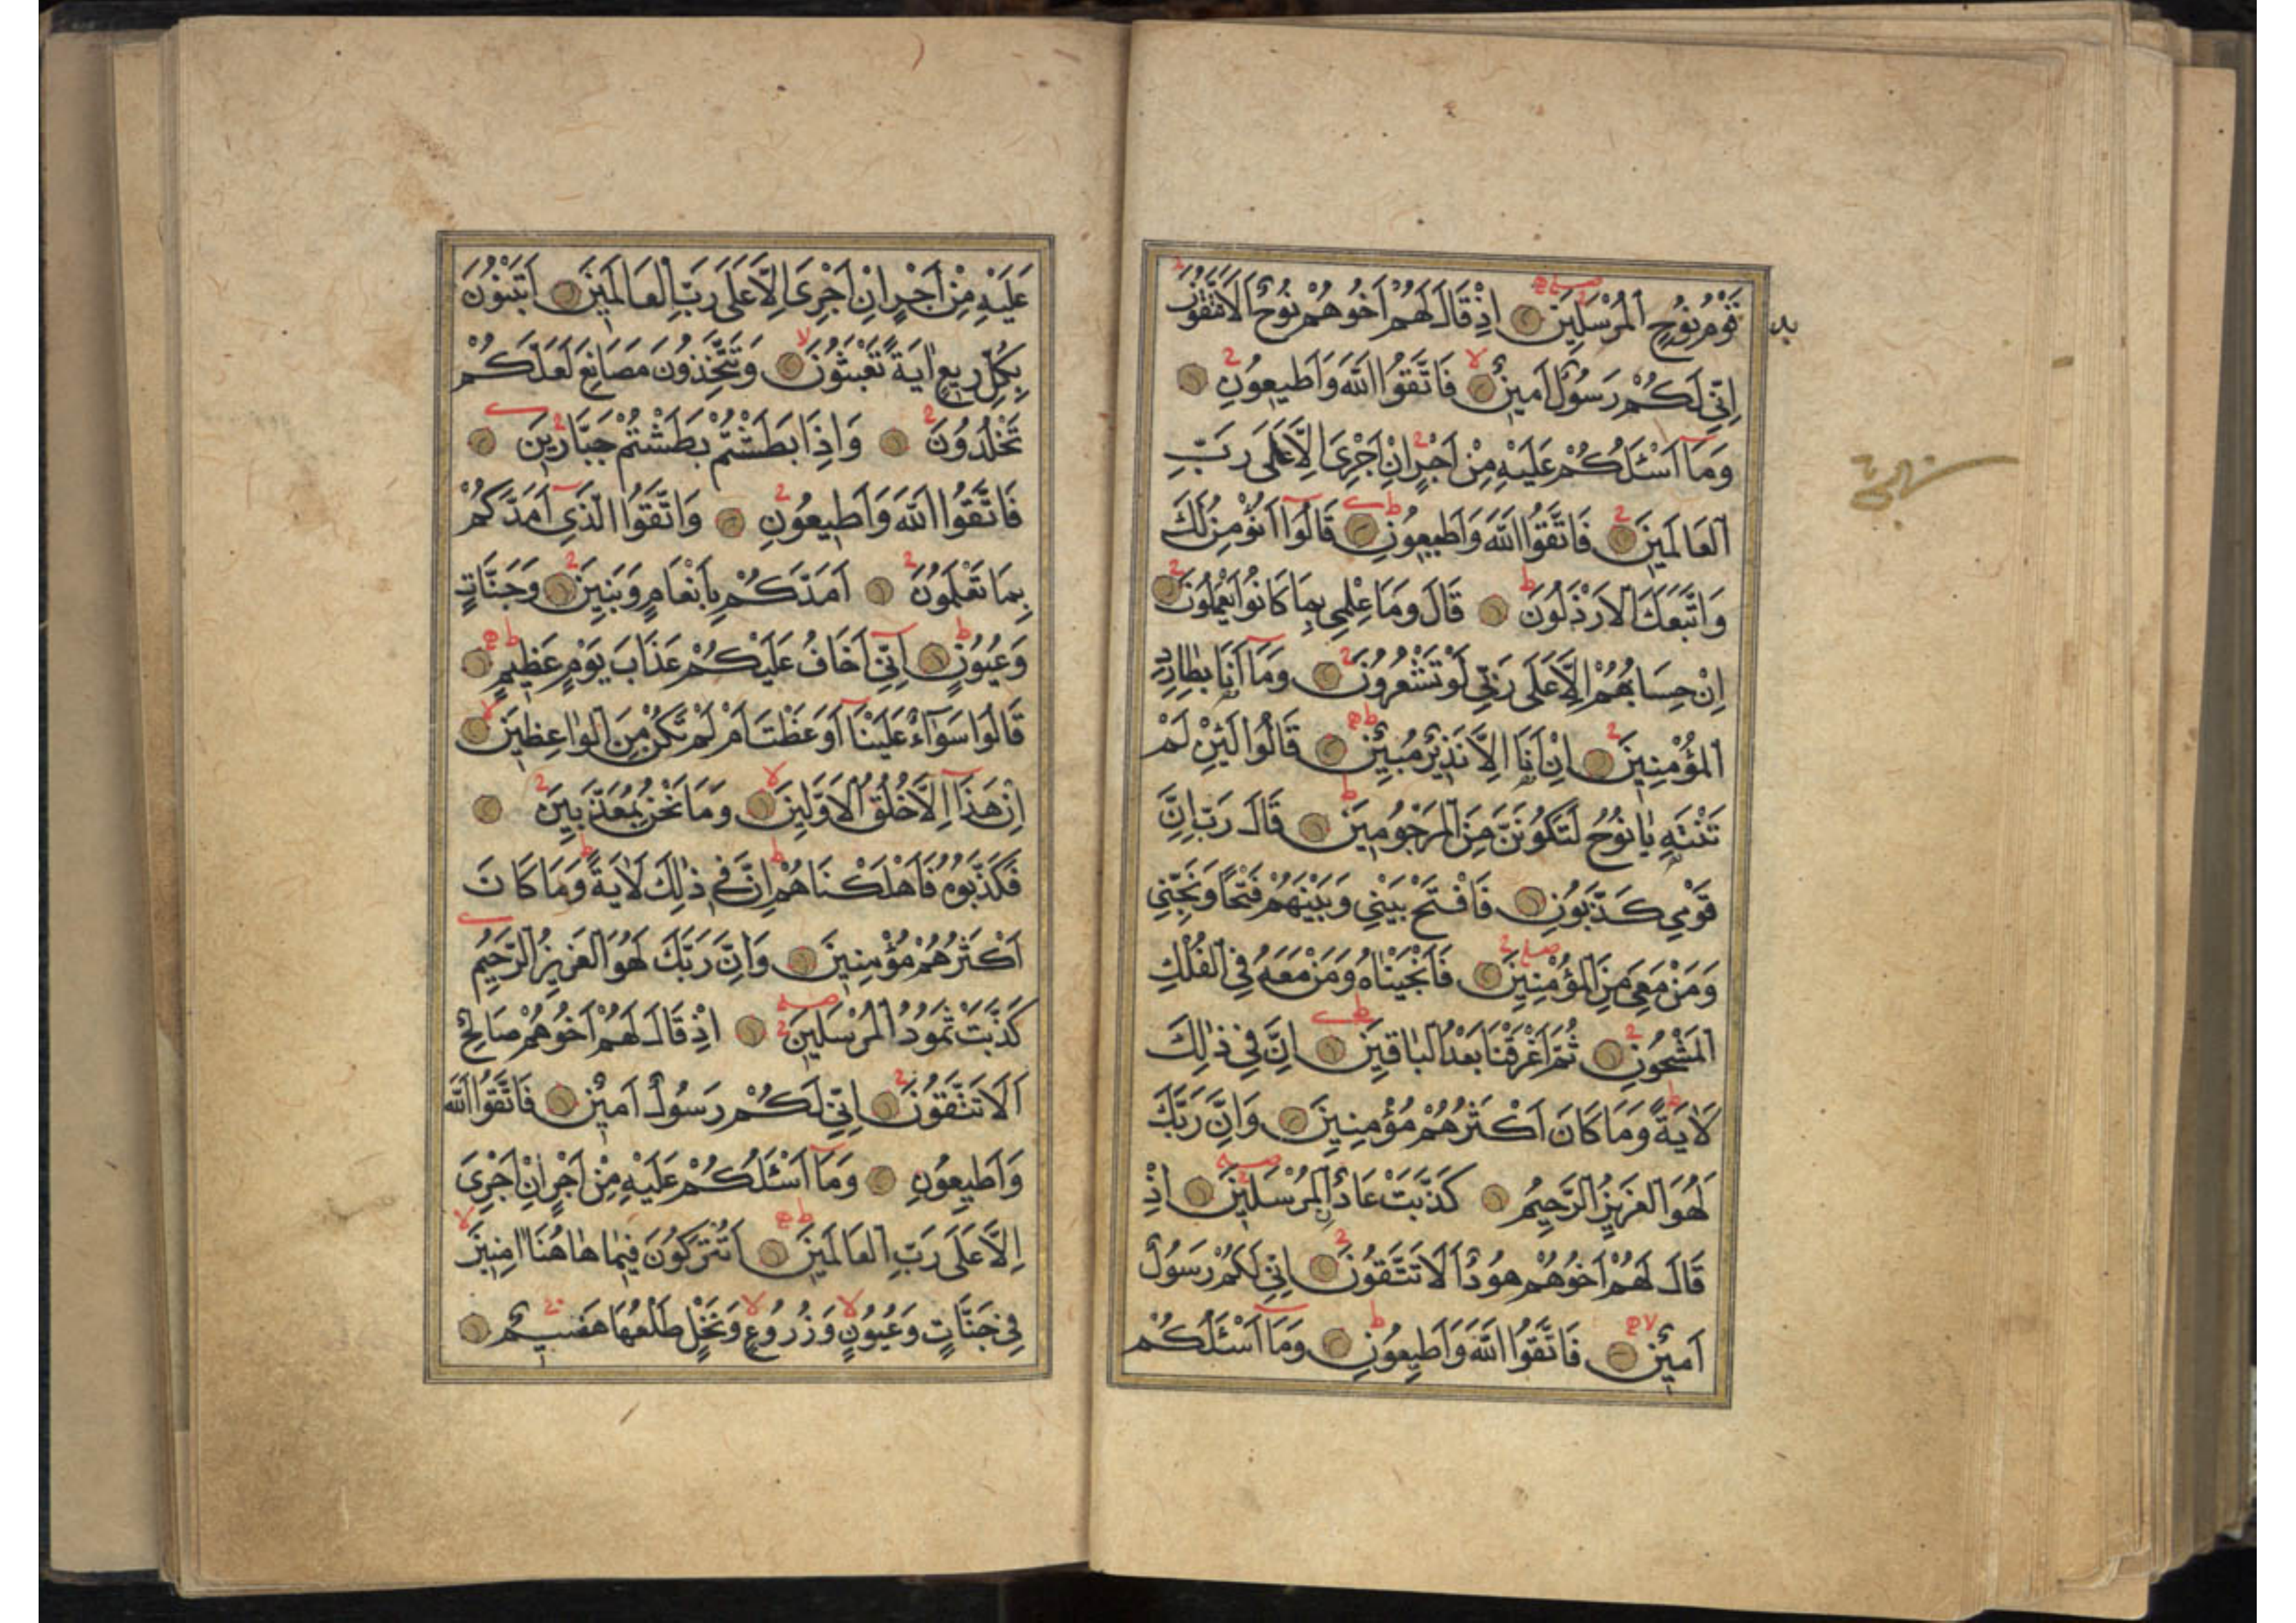 قَوْمُ نُوحٍ الْمُرْسَلِينَ اِذْ قَالَ لَهُمْ اَخُوهُمْ نُوحٌ اَلَا تَتَّقُونَ
اِنِّي لَكُمْ رَسُولٌ اَمِينٌ فَاتَّقُوا اللّٰهَ وَاَطِيعُونِ
وَمَآ اَسْئَلُكُمْ عَلَيْهِ مِنْ اَجْرٍ اِنْ اَجْرِيَ اِلَّا عَلَى رَبِّ
الْعَالَمِينَ فَاتَّقُوا اللّٰهَ وَاَطِيعُونِ قَالُوٓا اَنُؤْمِنُ لَكَ
وَاتَّبَعَكَ الْاَرْذَلُونَ قَالَ وَمَا عِلْمِي بِمَا كَانُوا يَعْمَلُونَ
اِنْ حِسَابُهُمْ اِلَّا عَلَى رَبِّي لَوْ تَشْعُرُونَ وَمَآ اَنَا بِطَارِدِ
الْمُؤْمِنِينَ اِنْ اَنَا اِلَّا نَذِيرٌ مُبِينٌ قَالُوا لَئِنْ لَمْ
تَنْتَهِ يَا نُوحُ لَتَكُونَنَّ مِنَ الْمَرْجُومِينَ قَالَ رَبِّ اِنَّ
قَوْمِي كَذَّبُونِ فَافْتَحْ بَيْنِي وَبَيْنَهُمْ فَتْحًا وَنَجِّنِي
وَمَنْ مَعِيَ مِنَ الْمُؤْمِنِينَ فَاَنْجَيْنَاهُ وَمَنْ مَعَهُ فِي الْفُلْكِ
الْمَشْحُونِ ثُمَّ اَغْرَقْنَا بَعْدُ الْبَاقِينَ اِنَّ فِي ذٰلِكَ
لَاٰيَةً وَمَا كَانَ اَكْثَرُهُمْ مُؤْمِنِينَ وَاِنَّ رَبَّكَ
لَهُوَ الْعَزِيزُ الرَّحِيمُ كَذَّبَتْ عَادٌ الْمُرْسَلِينَ اِذْ
قَالَ لَهُمْ اَخُوهُمْ هُودٌ اَلَا تَتَّقُونَ اِنِّي لَكُمْ رَسُولٌ
اَمِينٌ فَاتَّقُوا اللّٰهَ وَاَطِيعُونِ وَمَآ اَسْئَلُكُمْ
عَلَيْهِ مِنْ اَجْرٍ اِنْ اَجْرِيَ اِلَّا عَلَى رَبِّ الْعَالَمِينَ اَتَبْنُونَ
بِكُلِّ رِيعٍ اٰيَةً تَعْبَثُونَ وَتَتَّخِذُونَ مَصَانِعَ لَعَلَّكُمْ
تَخْلُدُونَ وَاِذَا بَطَشْتُمْ بَطَشْتُمْ جَبَّارِينَ
فَاتَّقُوا اللّٰهَ وَاَطِيعُونِ وَاتَّقُوا الَّذِيٓ اَمَدَّكُمْ
بِمَا تَعْلَمُونَ اَمَدَّكُمْ بِاَنْعَامٍ وَبَنِينَ وَجَنَّاتٍ
وَعُيُونٍ اِنِّيٓ اَخَافُ عَلَيْكُمْ عَذَابَ يَوْمٍ عَظِيمٍ
قَالُوا سَوَآءٌ عَلَيْنَآ اَوَعَظْتَ اَمْ لَمْ تَكُنْ مِنَ الْوَاعِظِينَ
اِنْ هَذَآ اِلَّا خُلُقُ الْاَوَّلِينَ وَمَا نَحْنُ بِمُعَذَّبِينَ
فَكَذَّبُوهُ فَاَهْلَكْنَاهُمْ اِنَّ فِي ذٰلِكَ لَاٰيَةً وَمَا كَانَ
اَكْثَرُهُمْ مُؤْمِنِينَ وَاِنَّ رَبَّكَ لَهُوَ الْعَزِيزُ الرَّحِيمُ
كَذَّبَتْ ثَمُودُ الْمُرْسَلِينَ اِذْ قَالَ لَهُمْ اَخُوهُمْ صَالِحٌ
اَلَا تَتَّقُونَ اِنِّي لَكُمْ رَسُولٌ اَمِينٌ فَاتَّقُوا اللّٰهَ
وَاَطِيعُونِ وَمَآ اَسْئَلُكُمْ عَلَيْهِ مِنْ اَجْرٍ اِنْ اَجْرِيَ
اِلَّا عَلَى رَبِّ الْعَالَمِينَ اَتُتْرَكُونَ فِيمَا هَاهُنَا اٰمِنِينَ
فِي جَنَّاتٍ وَعُيُونٍ وَزُرُوعٍ وَنَخْلٍ طَلْعُهَا هَضِيمٌ